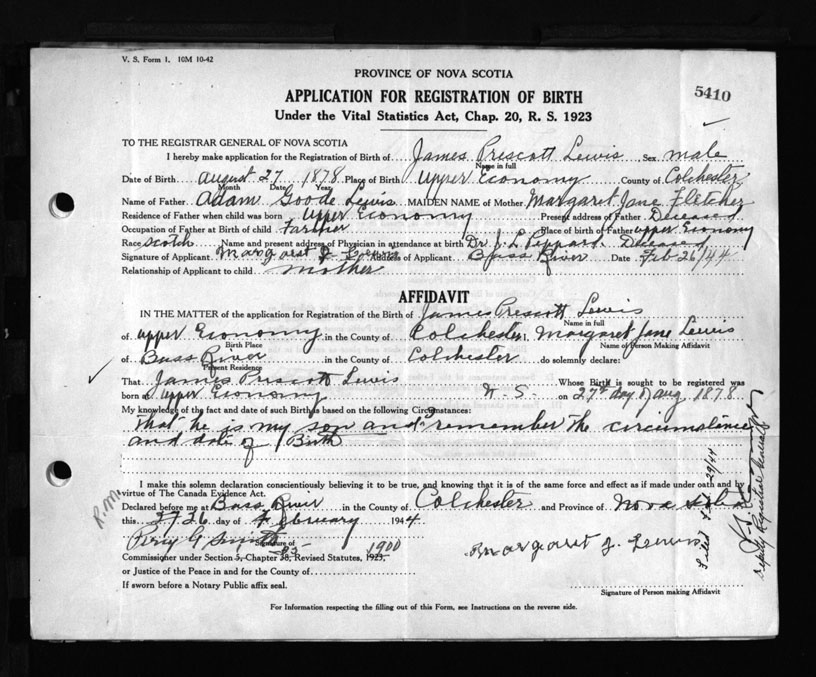 V. S. Form 1. 10M 10-42
PROVINCE OF NOVA SCOTIA
5410
APPLICATION FOR REGISTRATION OF BIRTH
Under the Vital Statistics Act, Chap. 20, R. S. 1923
TO THE REGISTRAR GENERAL OF NOVA SCOTIA
I hereby make application for the Registration of Birth of James Prescott Lewis Sex male
Name in full
Date of Birth August 27 1878 Place of Birth Upper Economy County of Colchester
Month Date Year
Name of Father Adam Goode Lewis MAIDEN NAME of Mother Margaret Jane Fletcher
Residence of Father when child was born Upper Economy Present address of Father Deceased
Occupation of Father at Birth of child Farmer Place of birth of Father upper Economy
Race Scotch Name and present address of Physician in attendance at birth Dr. J. L. Peppard Deceased
Signature of Applicant Margaret J Lewis Address of Applicant Bass River Date Feb 26/44
Relationship of Applicant to child mother
AFFIDAVIT
IN THE MATTER of the application for Registration of the Birth of James Prescott Lewis
Name in full
of upper Economy in the County of Colchester I, Margaret Jane Lewis
Birth Place Name of Person Making Affidavit
of Bass River in the County of Colchester do solemnly declare:
Present Residence
That James Prescott Lewis Whose Birth is sought to be registered was
born at upper Economy N. S. on 27th day of Aug 1878
My knowledge of the fact and date of such Birth is based on the following Circumstances:
that he is my son and remember the circumstance
and date of Birth
I make this solemn declaration conscientiously believing it to be true, and knowing that it is of the same force and effect as if made under oath and by
virtue of The Canada Evidence Act.
R.M.
Declared before me at Bass River in the County of Colchester and Province of Nova Scotia
this 26 day of February 1944
Percy G Smith
Signature of
Commissioner under Section 5, Chapter 38, Revised Statutes, 1923, 1900
Margaret J. Lewis
or Justice of the Peace in and for the County of
If sworn before a Notary Public affix seal.
Signature of Person making Affidavit
For Information respecting the filling out of this Form, see Instructions on the reverse side.
Filed Feb 29/44
Deputy Registrar General